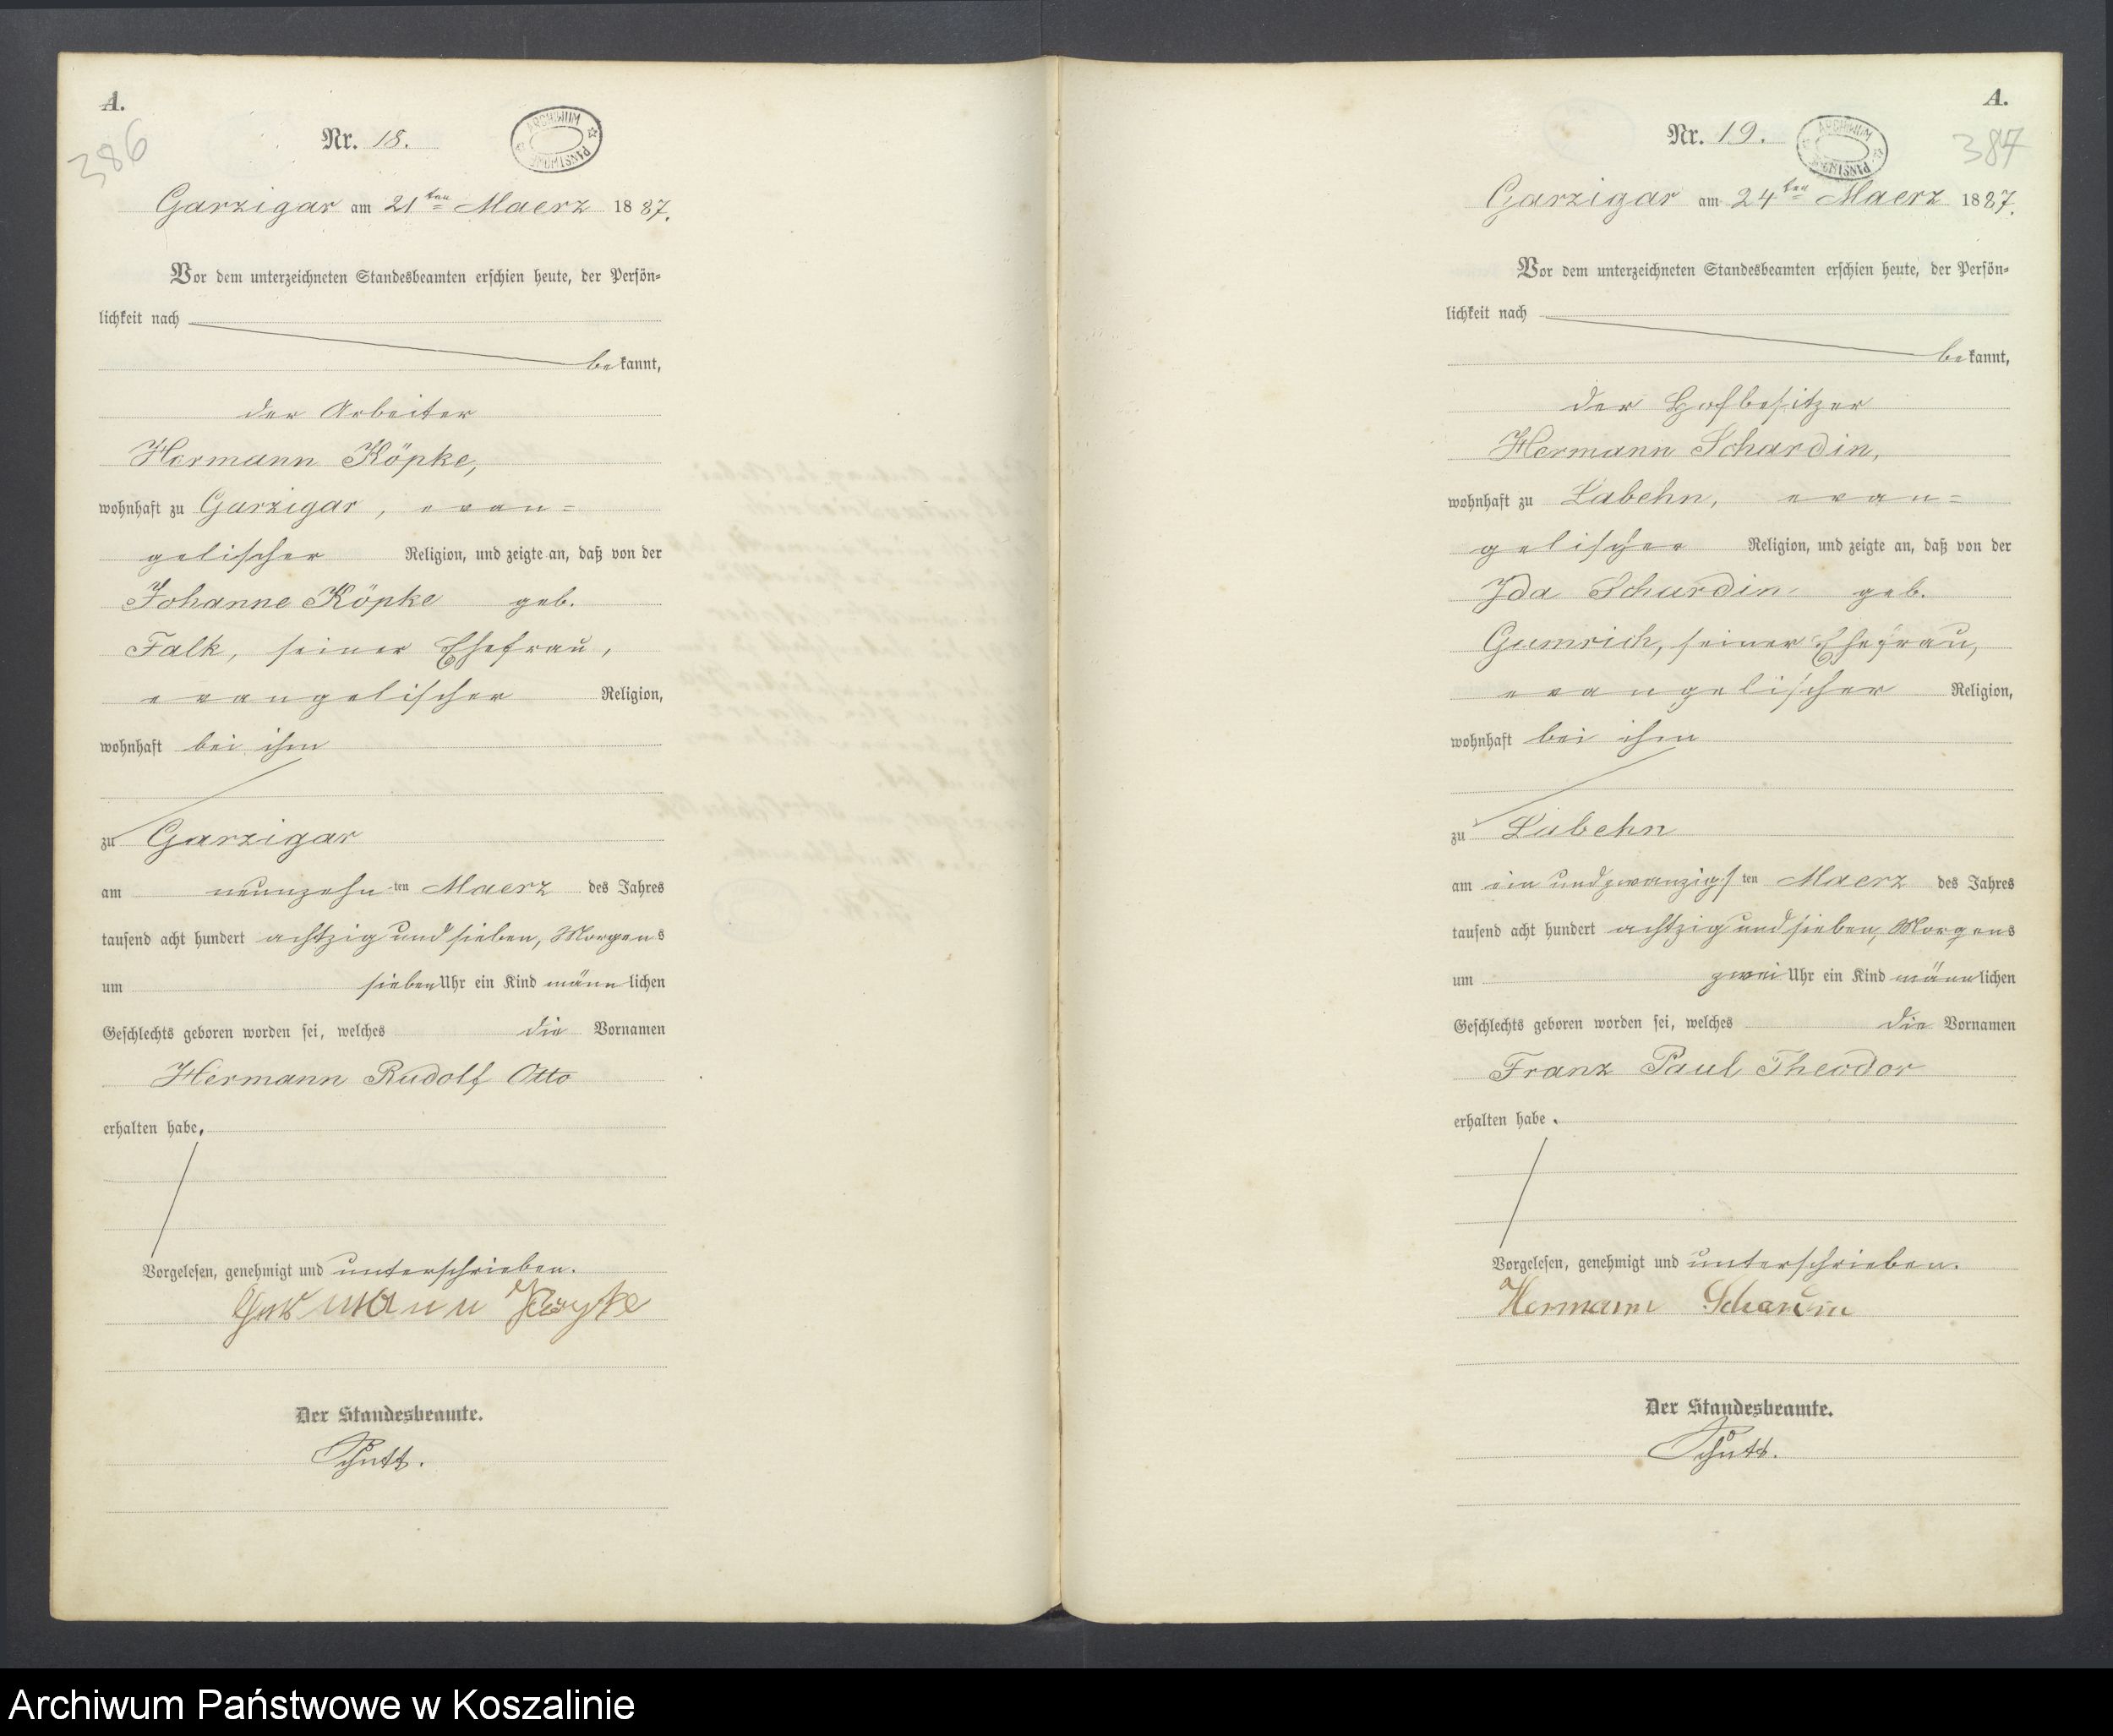 A.
386
Nr. 18.
ARCHIWUM PAŃSTWOWE
Garzigar am 21ten Maerz 1887.
Vor dem unterzeichneten Standesbeamten erschien heute, der Persön-
lichkeit nach
bekannt,
der Arbeiter
Hermann Köpke,
wohnhaft zu Garzigar, evan=
gelischer Religion, und zeigte an, daß von der
Johanne Köpke geb.
Falk, seiner Ehefrau,
evangelischer Religion,
wohnhaft bei ihm
zu Garzigar
am neunzehnten Maerz des Jahres
tausend acht hundert achtzig und sieben, Morgens
um sieben Uhr ein Kind männlichen
Geschlechts geboren worden sei, welches die Vornamen
Hermann Rudolf Otto
erhalten habe.
Vorgelesen, genehmigt und unterschrieben.
Hermann Köpke
Der Standesbeamte.
Schütt.
A.
387
Nr. 19.
ARCHIWUM PAŃSTWOWE
Garzigar am 24ten Maerz 1887.
Vor dem unterzeichneten Standesbeamten erschien heute, der Persön-
lichkeit nach
bekannt,
der Hofbesitzer
Hermann Schardin,
wohnhaft zu Labehn, evan=
gelischer Religion, und zeigte an, daß von der
Ida Schardin geb.
Gumrich, seiner Ehefrau,
evangelischer Religion,
wohnhaft bei ihm
zu Labehn
am ein und zwanzigsten Maerz des Jahres
tausend acht hundert achtzig und sieben, Morgens
um zwei Uhr ein Kind männlichen
Geschlechts geboren worden sei, welches die Vornamen
Franz Paul Theodor
erhalten habe.
Vorgelesen, genehmigt und unterschrieben.
Hermann Schardin
Der Standesbeamte.
Schütt.
Archiwum Państwowe w Koszalinie